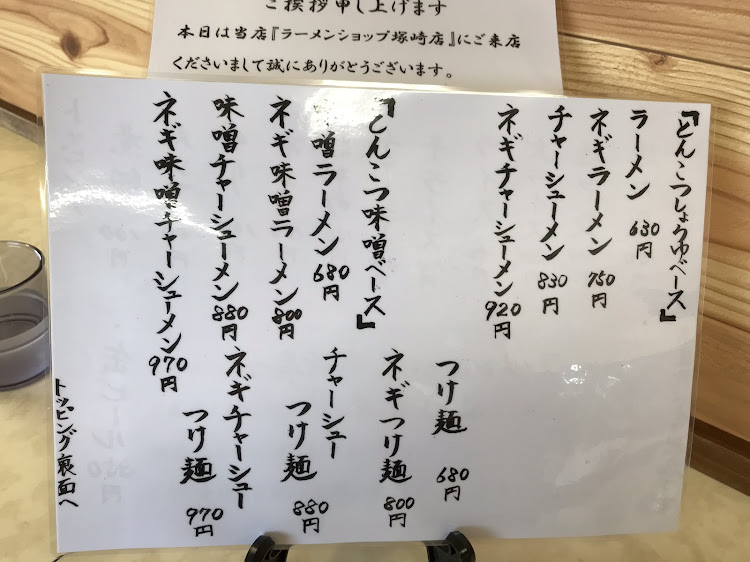 ご挨拶申し上げます
本日は当店『ラーメンショップ塚崎店』にご来店
くださいまして誠にありがとうございます。
『とんこつしょうゆベース』
ラーメン 630円
ネギラーメン 750円
チャーシューメン 830円
ネギチャーシューメン 920円
つけ麺 680円
ネギつけ麺 800円
チャーシュー
つけ麺 880円
ネギチャーシュー
つけ麺 970円
『とんこつ味噌ベース』
噌ラーメン 680円
ネギ味噌ラーメン 800円
味噌チャーシューメン 880円
ネギ味噌チャーシューメン 970円
トッピング裏面へ